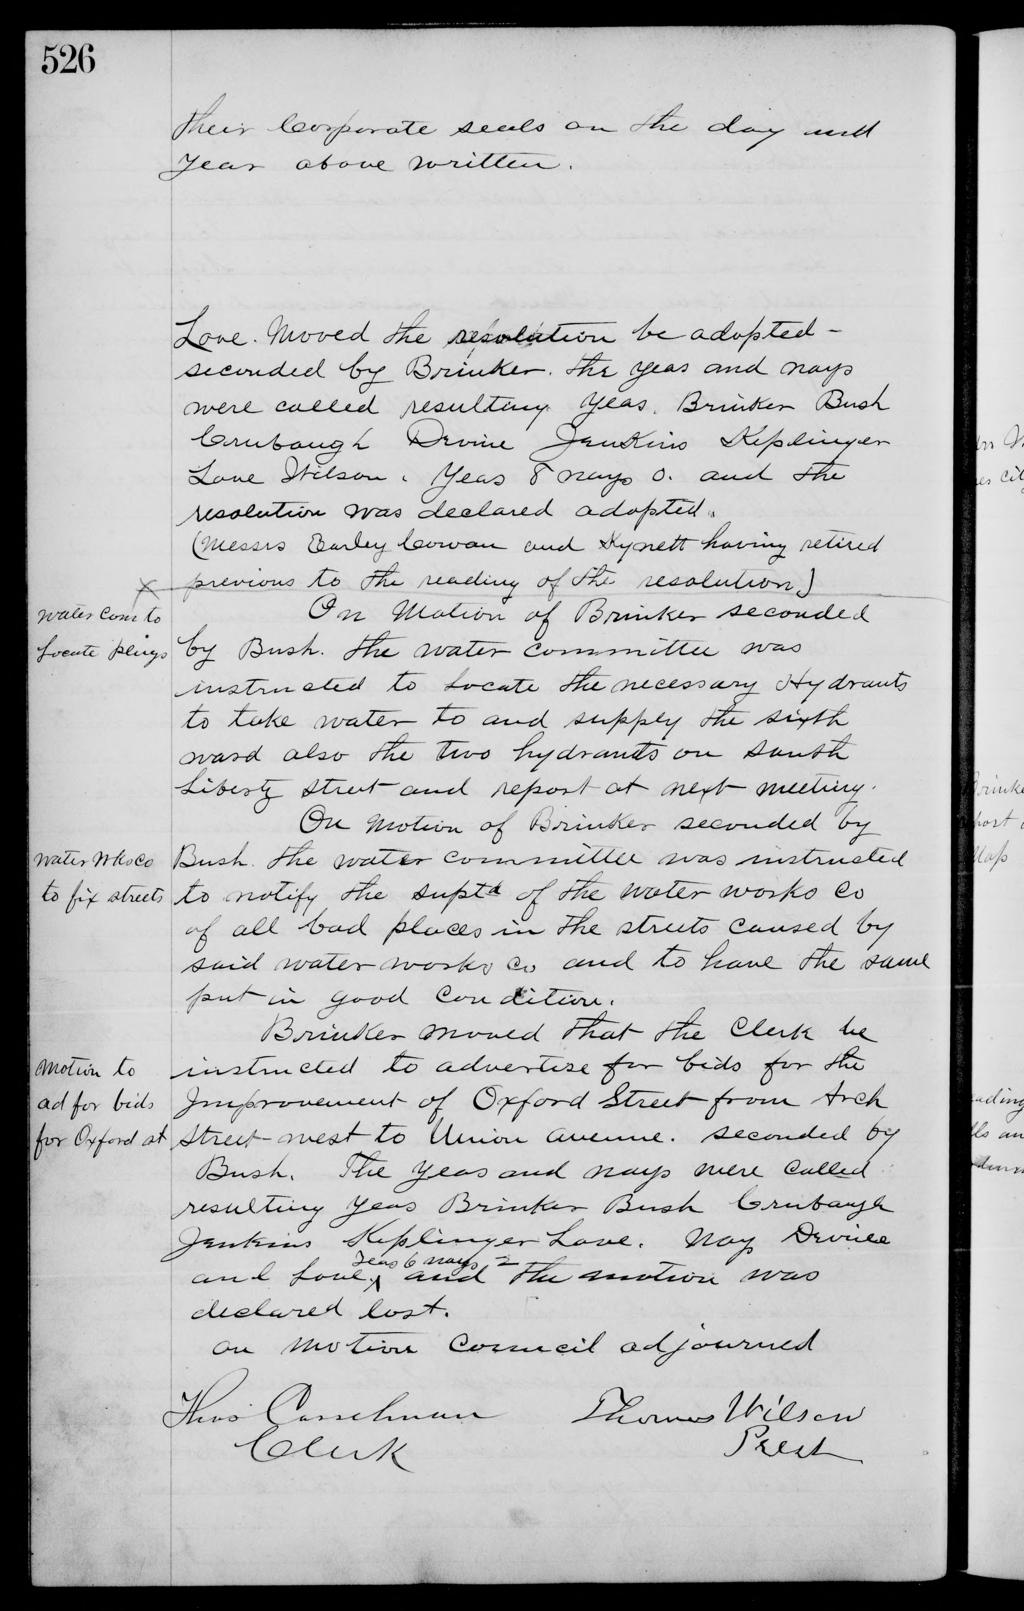 526
their Corporate seals on the day and
year above written.
Love. Moved the resolution be adopted -
seconded by Brinker. the yeas and nays
were called resulting yeas. Brinker Bush
Crubaugh Devine Jenkins Keplinger
Love Wilson. Yeas 8 nays 0. and the
resolution was declared adopted.
(Messrs Earley Cowan and Kynett having retired
previous to the reading of the resolution)
X
water Com to
Locate plugs
On Motion of Brinker seconded
by Bush. the water committee was
instructed to Locate the necessary Hydrants
to take water to and supply the sixth
ward also the two hydrants on south
Liberty street and report at next meeting.
On Motion of Brinker seconded by
water wks co
to fix streets
Bush. the water committee was instructed
to notify the supt of the water works Co
of all bad places in the streets caused by
said water works co and to have the same
put in good condition.
Brinker moved that the Clerk be
Motion to
ad for bids
for Oxford st
instructed to advertise for bids for the
Improvement of Oxford Street from Arch
street west to Union avenue. seconded by
Bush. The yeas and nays were called
resulting yeas Brinker Bush Crubaugh
Jenkins Keplinger Love. Nay Devine
and Love. yeas 6 nays 2 and the motion was
declared lost.
on motion Council adjourned
Thos Casselman
Clerk
Thomas Wilson
Prest